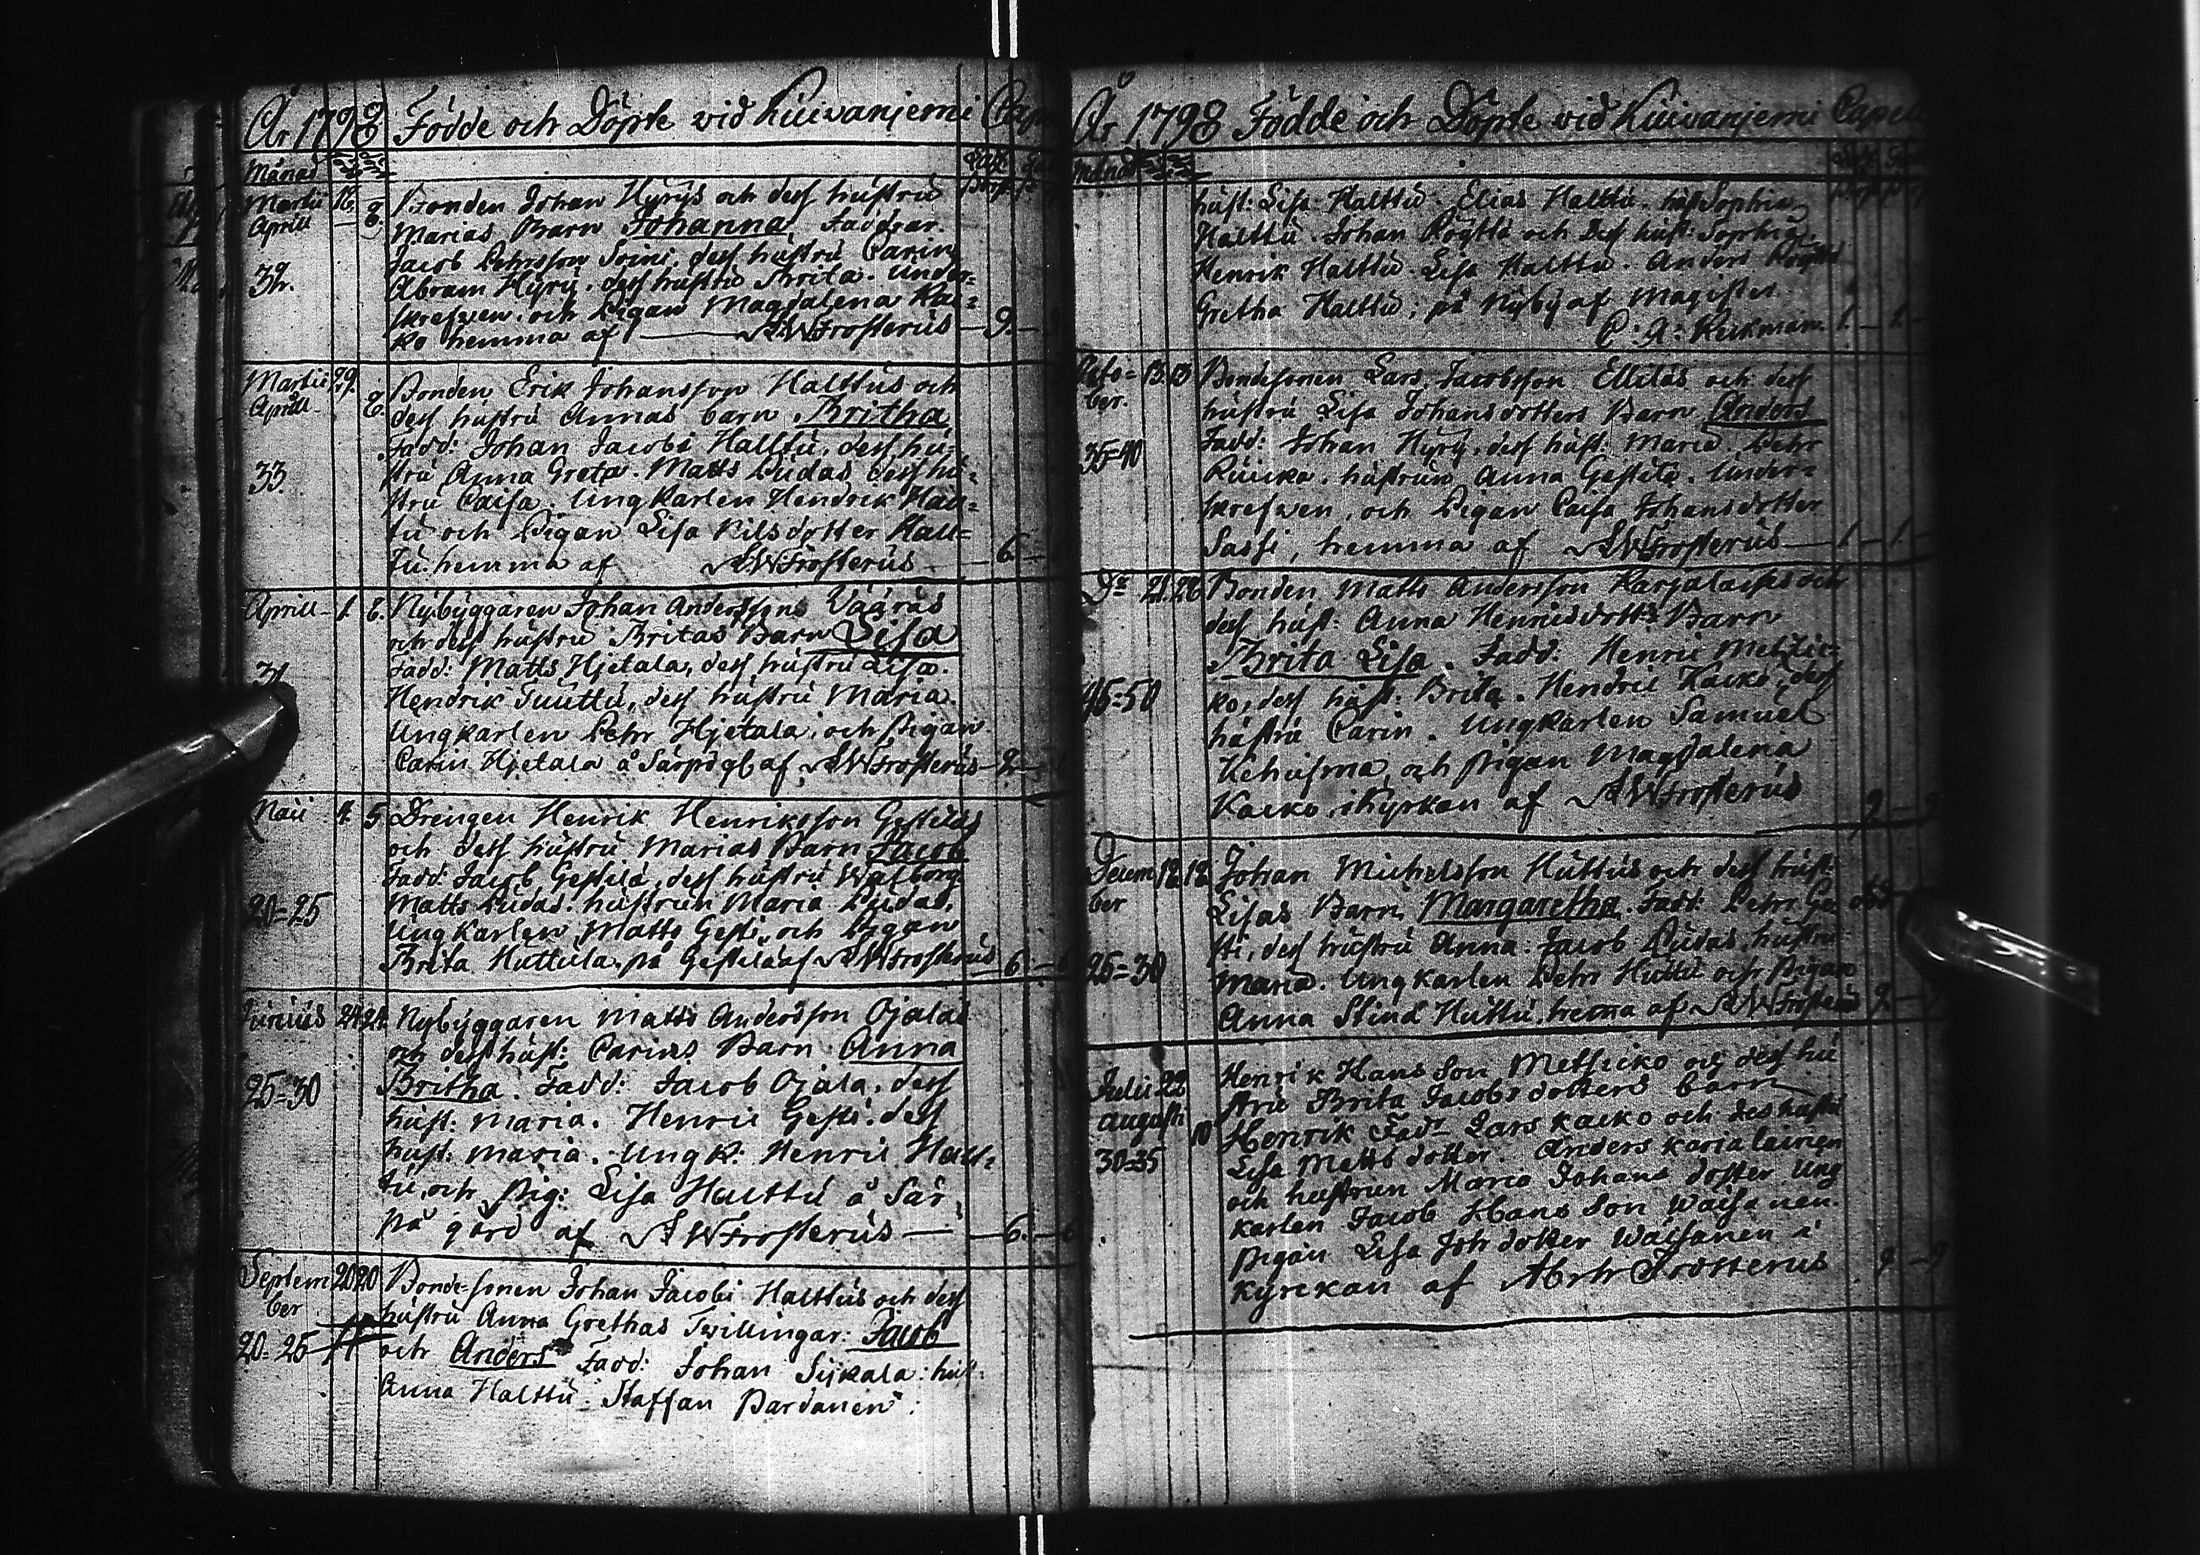 År 1798 Födde och Döpte wid Kuivanjemi Cap
Månad
Martii 16. Bonden Johan Hyrÿs och dess hustru
Aprill – 8. Marias Barn Johanna Faddrar.
Jacob Pehrsson Soini, dess hustru Carin
32. Abram Hyry, dess hustru Brita. Under-
skrefwen, och Pigan Magdalena Kai-
ko hemma af A W Frosterus – 9. –
Martii 29. Bonden Erik Johansson Halttus och
Aprill 8. dess hustru Annas barn Britha
Fadd: Johan Jacobi Halttu, dess hu-
33. stru Anna Greta. Matts Ludas dess hu-
stru Caisa. Ungkarlen Hendrik Hal-
tu och Pigan Lisa Nilsdotter Hall-
tu. hemma af A W Frosterus – 6. –
Aprill – 1. 8. Nybyggaren Johan Anderssons Wääräs
och dess hustru Britas Barn Lisa
Fadd: Matts Hjetala, dess hustru Lisa.
Hendrik Tuuttu, dess hustru Maria.
Ungkarlen Pehr Hjetala, och Pigan
Carin Hjetala å af A W Frosterus
Maii 4. 5 Drengen Henrik Henriksson Gestilas
och dess hustru Marias Barn Jacob
Fadd: Jacob Gestilä, dess hustru Walborg.
20=25 Matts Ludas. hustrun Maria Ludas.
Ungkarlen Matts Gesti, och Pigan
Brita Huttula, på Gestilä af A W Frosterus – 6. – 6
Junius 24. 24. Nybyggaren Matts Andersson Ojalas
och dess hust: Carins Barn Anna
25=30 Britha. Fadd: Jacob Ojala, dess
hust: Maria. Henric Gesti. dess
hust: Maria. Ungk: Henric Hall-
tu, och Pig: Lisa Halttu å Sär-
pä gård af A W Frosterus – 6. – 6
Septem 20 20 Bonde-sonen Johan Jacobi Halttus och dess
ber hustru Anna Grethas Twillingar: Jacob
20=25 och Anders Fadd: Johan Sijkala: hust:
Anna Halttu: Staffan Pardanen:
År 1798 Födde och Döpte wid Kuivanjemi Capell
Månad
hust: Lisa Halttu. Elias Halttu. hust Sophia
Halttu. Johan Pöÿttö och dess hust: Sophia
Henrik Halttu. Lisa Halttu. Anders
Gretha Halttu; på Nyby af Magister
C: A: Keckman. 1. – 1. –
Octo= 13. 13 Bondesonen Lars Jacobsson Ellilas och dess
ber. hustru Lisa Johansdotters Barn Anders
35=40 Fadd: Johan Hyrÿ, dess hust: Maria. Pehr
hustrun Anna Gestilä. Under-
skrefwen, och Pigan Caisa Johansdotter
Sassi, hemma af A W Frosterus – 1 – 1. –
Do 21. 28 Bonden Matts Andersson och
dess hust: Anna Henricsdotts Barn
Brita Lisa. Fadd: Henric Metzic-
45=50 ko, dess hust: Brita. Hendric Kaiko, dess
hustru Carin. Ungkarlen Samuel
och Pigan Magdalena
Kaiko, i Kyrkan af A W Frosterus 9 – 9
Decem 12. 12. Johan Michelsson Huttus och dess hust:
ber Lisas Barn Margaretha. Fadd: Pehr Ge-
sti, dess hustru Anna. Jacob Ludas, hustru
25=30 Maria. Ungkarlen Pehr Huttu och Pigan
Anna Stina Huttu, hema af A W Frosterus 9 –
Henrik Hans Son Metsicko och dess hu
Julii 22 stru Brita Jacobs dotters barn
augusti 10 Henrik Fad: Lars kaiko och des hustru
30=35 Lisa Matts dotter. Anders karialainen
och hustrun Maria Johans dotter Ung
karlen Jacob Hans Son Waisanen.
pigan Lisa Joh dotter Waisanen i
Kyrckan af Abrh Frosterus 9 – 9